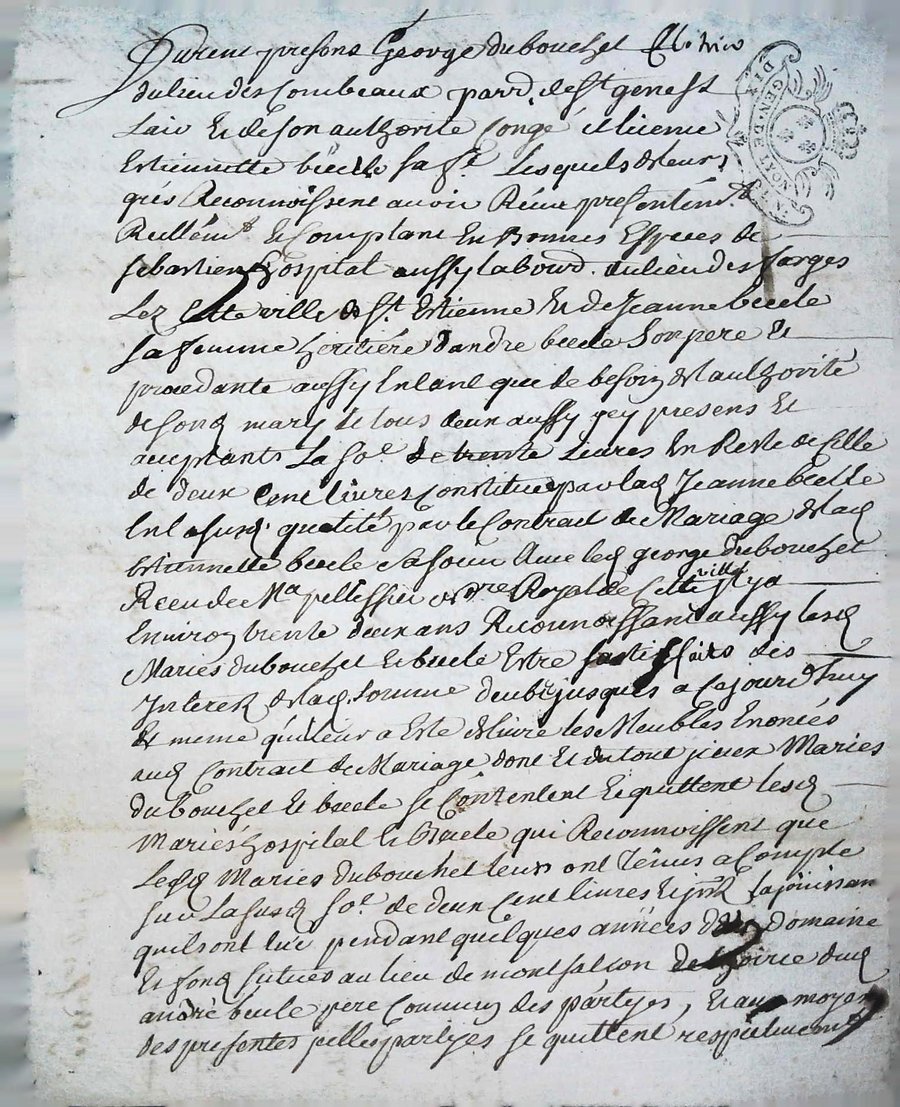 Furent presens George dubouchet
du lieu des Combeaux parr. de St genest
Laiv Et de son authorité Congé et licence
Estiennette bècle sa fe. Lesquels de leur
grés Reconnoissent avoir Reçeu presentemt.
Reellemt. Et Comptant En Bonnes Especes de
sebastien hospital aussy labourd. du lieu des forges
Lez Cette ville de St. Estienne Et de Jeanne becle
sa femme heritiére d'andre becle Son pere Et
procedante aussy Entant que de besoin de l'authorité
de sond mary Et tous deux aussy icy presens Et
acceptants La so.e de trente Livres En Reste de Celle
de deux Cent livres Constituée par lad Jeanne becle
En la susd. qualité par le Contrat de Mariage de lad
Estiennette becle sa soeur Avec led george dubouchet
Receu de Me pellissier Royal de Cette ville Il y a
Environ trente deux ans Reconnoissant aussy lesd
Mariés dubouchet Et becle Estre satisfaits des
Interets de lad. Somme jusques a Ce jourd'huy
de meme qu'il leur a Esté delivré les Meubles Enoncés
aud Contrat de Mariage dont Et du tout jceux Mariés
dubouchet Et becle se Contentent Et quittent lesd
Mariés hospital Et becle qui Reconnoissent que
Lesd Mariés dubouchet leur ont Tenus a Compte
sur La susd so.e de deux Cent livres Et jnts la jouissan
qu'ils ont Eue pendant quelques années du Domaine
Et fond situés au lieu de montsalson de dud
andré bècle pere Commun des partyes, Et au moyen
des presentes jcelles partyes se quittent respectivement
GEN. DE